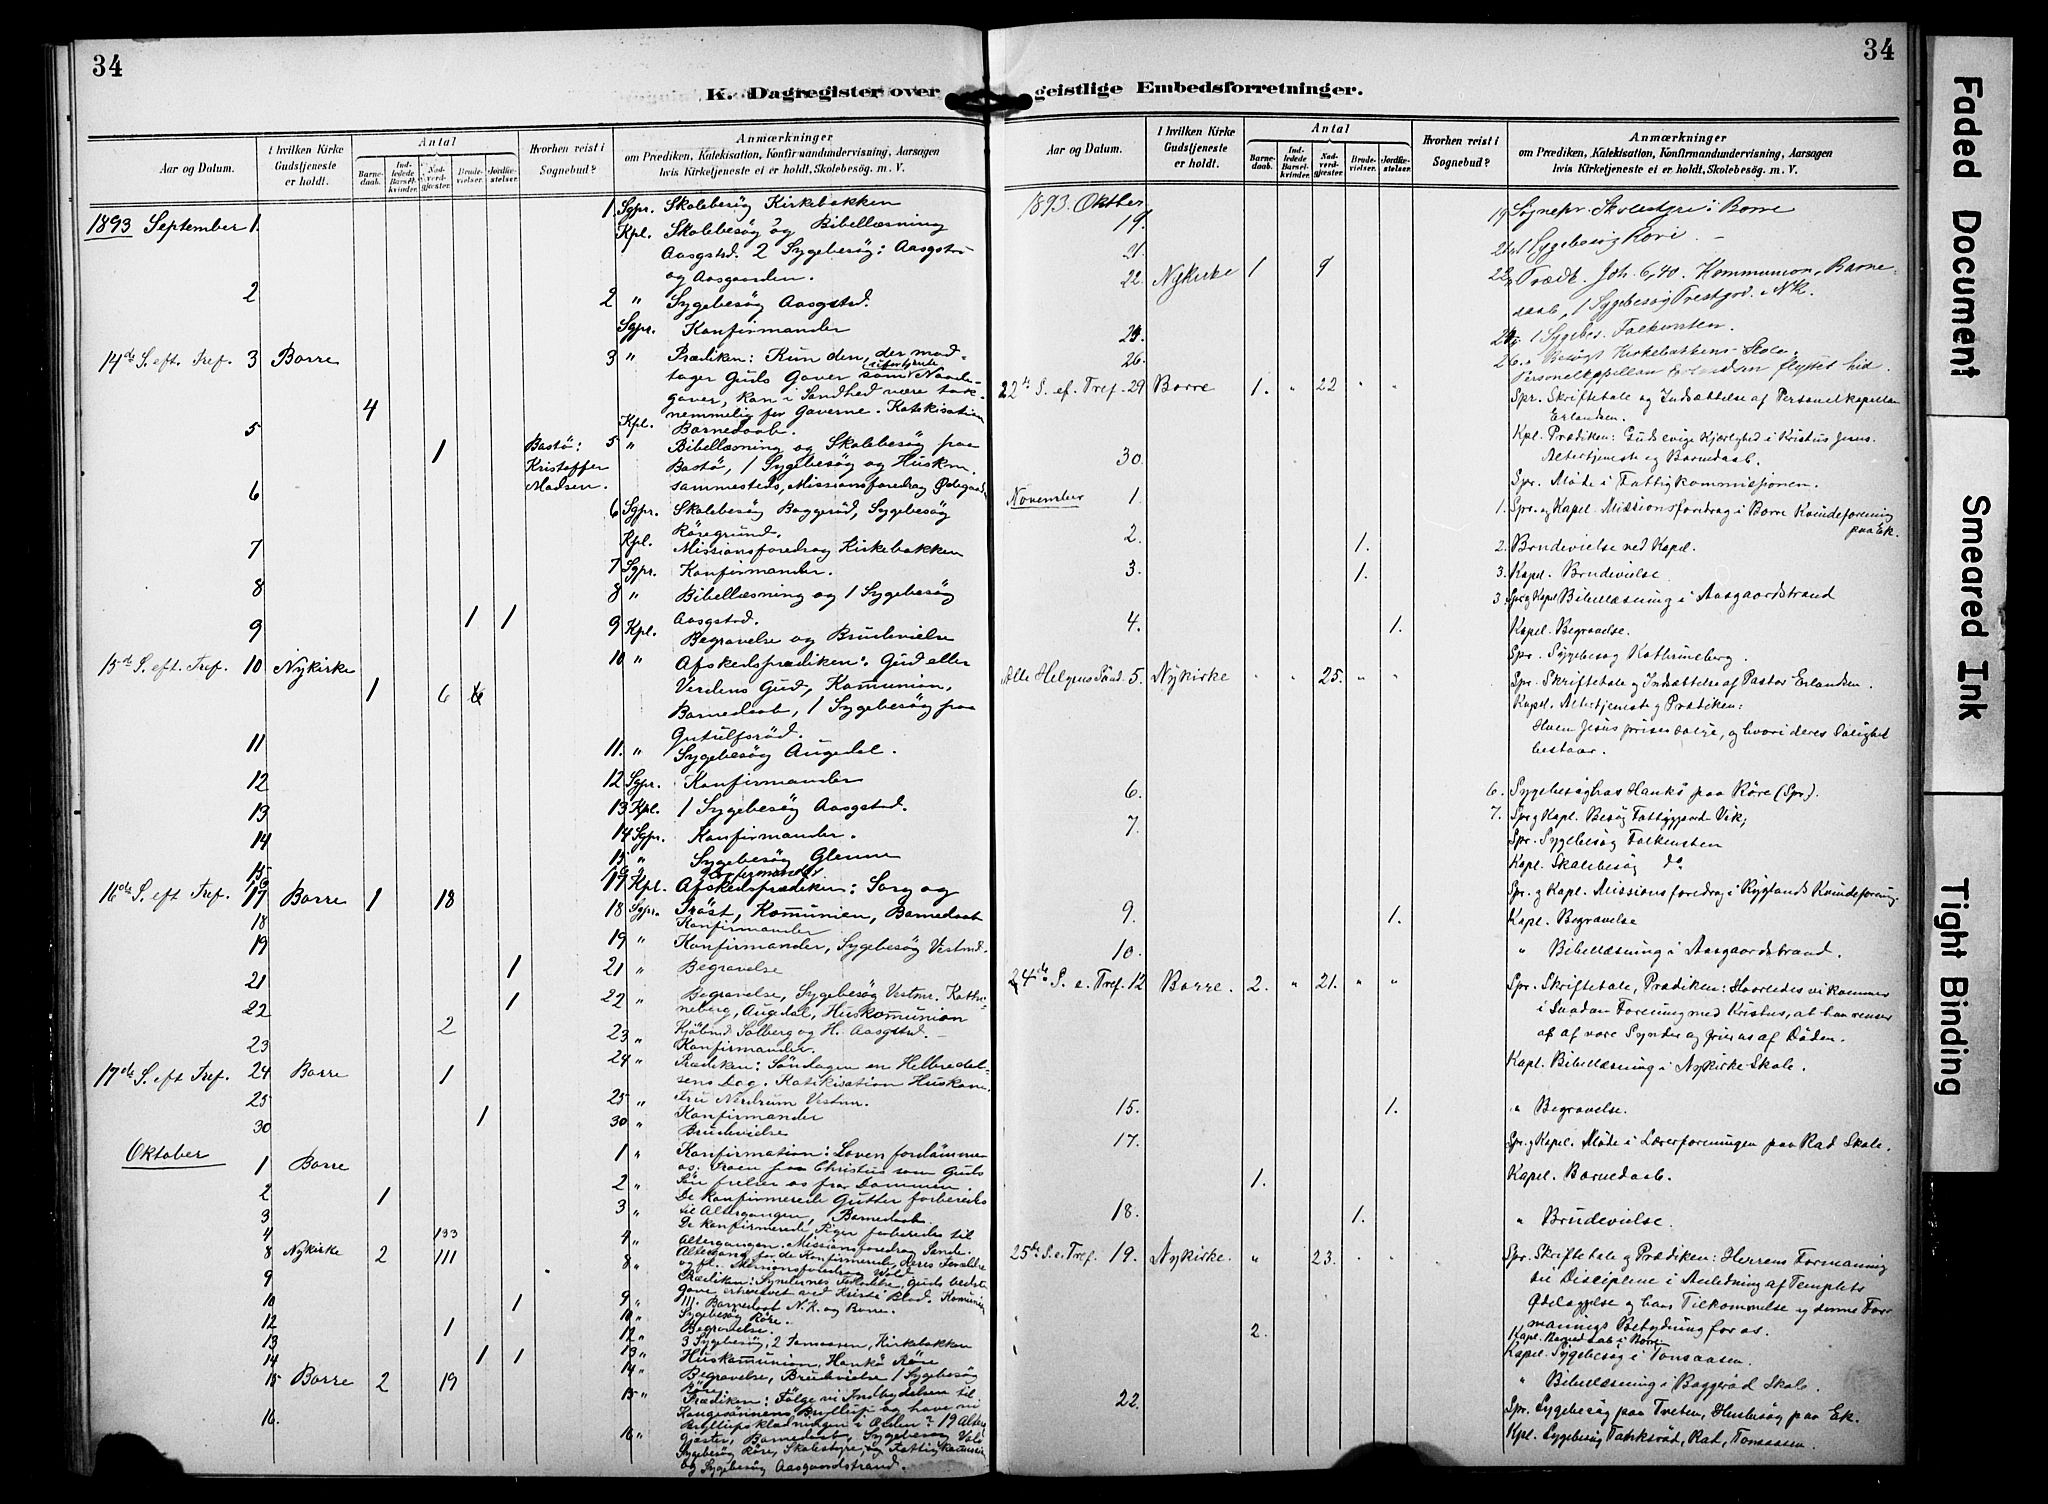 34
K. Dagregister over
Aar og Datum.
I hvilken Kirke Gudstjeneste er holdt.
Antal
Barnedaab.
Indledede Barselkvinder.
Nadverdgjester.
Brudevielser.
Jordfæstelser.
Hvorhen reist i Sognebud?
Anmærkninger
om Prædiken, Katekisation, Konfirmandundervisning, Aarsagen
hvis Kirketjeneste ei er holdt, Skolebesøg. m. V.
1893 September 1. 1. Sgpr. Skolebesøg Kirkebakken
Kpl. Skolebesøg og Bibellæsning
Aasgstrd. 2 Sygebesøg: Aasgstr
og Aasgaarden.
2 2 " Sygebesøg Aasgstrd.
Sgpr. Konfirmander
14de S. eft. Tref. 3 Borre 3 " Prædiken: Kun den, der mod-
tager Guds Gaver som Naade-
gaver, kan i Sandhed være tak-
4 nemmelig for Gaverne. Katekisation
Kpl. Barnedaab.
5 1 Bastø: 5 " Bibellæsning og Skolebesøg paa
Kristoffer Bastø, 1 Sygebesøg og Huskm.
Madsen. sammesteds, Missionsforedrag Ødegaard
6 6 Sgpr. Skolebesøg Baggerød, Sygebesøg
Røregrund.
Kpl. Missionsforedrag Kirkebakken
7 7 Sgpr. Konfirmander.
8 8 " Bibellæsning og 1 Sygebesøg
Aasgstrd.
9 1 1 9 Kpl. Begravelse og Brudevielse
15de S. eft. Tref. 10 Nykirke 10 " Afskedsprædiken: Gud eller
1 6 Verdens Gud, Komunion,
Barnedaab, 1 Sygebesøg paa
Gutulfsrød.
11 11. " Sygebesøg Augedal.
12 12 Sgpr. Konfirmander
13 13 Kpl. 1 Sygebesøg Aasgstrd.
14 14 Sgpr. Konfirmander.
15 15 " Sygebesøg Glenne
16 16 " Konfirmander
16de S. eft Tref. 17 Borre 1 18 17 Kpl. Afskedsprædiken: Sorg og
Trøst, Komunion, Barnedaab
18 18 Sgpr. Konfirmander
19 19 " Konfirmander, Sygebesøg Vestnd.
21 1 21 " Begravelse
22 1 2 22 " Begravelse, Sygebesøg Vestnr. Kathri-
neberg, Augedal, Huskomunion
Kjøbmd. Solberg og H. Aasgstrd.
23 23 " Konfirmander.
17de S. eft Tref. 24 Borre 1 24 " Prædiken: Søndagen en Helbredel-
sens Dag. Katekisation Huskom.
Fru Nerdrum Vestnr.
25 25 " Konfirmander
30 1 30 " Brudevielse
Oktober
1 Borre 1 " Konfirmation: Loven fordømmer
os; Troen paa Christus som Guds
Søn frelser os fra Dommen.
2 1 2 " De konfirmerede Gutter forberedes
til Altergangen, Barnedaab
3 3 " De konfirmerede Piger forberedes til
Altergangen. Missionsforedrag Sande.
4 133 4 " Altergang for de Konfirmerede, deres Forældre
og fl. Missionsforedrag Wold
8 Nykirke 2 111 8 " Prædiken: Syndernes Forladelse, Guds bedste
Gave erhvervet ved Kristi Blod. Komunion
111. Barnedaab N.K. og Borre.
9 9 " Sygebesøg Røre.
10 1 10 " Begravelse.
12 12 " 3 Sygebesøg, 2 Tonsaasen, Kirkebakken
13 1 13 " Huskomunion, Hankø Røre
14 1 1 14 " Begravelse, Brudevielse 1 Sygebesøg
Røre
15 Borre 2 19 15 " Prædiken: Følge vi Indbydelsen til
Kongesønnens Bryllup og have vi
Bryllupsklædningen i Orden? 19 Alter
gjæster, Barnedaab, Sygebesøg Vold
16. 16 " Sygebesøg Røre, Skolestyre og Fattigkomission
og Sygebesøg Aasgaardstrand.
34
geistlige Embedsforretninger.
Aar og Datum.
I hvilken Kirke Gudstjeneste er holdt.
Antal
Barnedaab.
Indledede Barselkvinder.
Nadverdgjester.
Brudevielser.
Jordfæstelser.
Hvorhen reist i Sognebud?
Anmærkninger
om Prædiken, Katekisation, Konfirmandundervisning, Aarsagen
hvis Kirketjeneste ei er holdt, Skolebesøg. m. V.
1893. Oktber
19. 19 Sognepr. Skolestyre i Borre
21. 21 1 Sygebesøg Rori. –
22. Nykirke 1 9 22 Prædt. Joh. 6,40. Kommunion, Barne-
daab, 1 Sygebesøg Prestgrd. i NK.
24. 24 1 Sygebes. Falkensten.
26. 26. Besøgt Kirkebakkens Skole.
Personelkapellan Erlandsen flyttet hid.
22de S. ef. Tref. 29 Borre 1. " 22 " " Spr. Skriftetale og Indsættelse af Personelkapellan
Erlandsen.
Kpl. Prædiken: Guds evige Kjærlighed i Kristus Jesus.
Altertjeneste og Barnedaab.
30. Spr. Møde i Fattigkommisjonen.
November 1. 1. Spr. og Kapel. Missionsforedrag i Borre Kvindeforening
paa Ek.
2. 1. 2. Brudevielse ved Kapel.
3. 1. 3. Kapel. Brudevielse.
3. Spr. og Kapel Bibellæsning i Aasgaardstrand
4. 1. Kapel. Begravelse.
Spr. Sygebesøg Kathrineberg.
Alle Helgens Sønd. 5. Nykirke " " 25. " " Spr. Skriftetale og Indsættelse af Pastor Erlandsen.
Kapel. Altertjeneste og Prædiken:
Hvem Jesus priser salige, og hvori deres Salighed
bestaar.
6. 6. Sygebesøg hos Hankø paa Røre (Spr).
7. 7. Spr. og Kapl. Besøg Fattiggaard Vik;
Spr. Sygebesøg Falkensten
Kapl. Skolebesøg do
Spr. og Kapl. Missionsforedrag i Nyglands Kvindeforening.
9. 1. Kapel. Begravelse
10. " Bibellæsning i Aasgaardstrand.
24de S. e. Tref. 12 Borre. 2. " 21. " " Spr. Skriftetale, Prædiken: Hvorledes vi kommer
i saadan Forening med Kristus, at han renser
os af vore Synder og frier os af Døden.
Kapl. Bibellæsning i Nykirke Skole.
15. 1. " Begravelse.
17. Spr. og Kapel. Møde i Lærerforeningen paa Rad Skole.
1. Kapel. Barnedaab.
18. 1. " Brudevielse.
25de S. e. Tref. 19. Nykirke. " 23. " " Spr. Skriftetale og Prædiken: Herrens Formaning
til Disciplene i Anledning af Templets
Ødelæggelse og hans Tilkommelse og denne For-
manings Betydning for os.
2. Kapl. Barnedaab i Borre.
Kapel. Sygebesøg i Tonsaasen.
" Bibellæsning i Baggerød Skole.
22. Spr. Sygebesøg paa Tveten, Husbesøg paa Ek.
Kpl. Sygebesøg Falkksrød, Rad, Tonsaasen.
Faded Document
Smeared Ink
Tight Binding